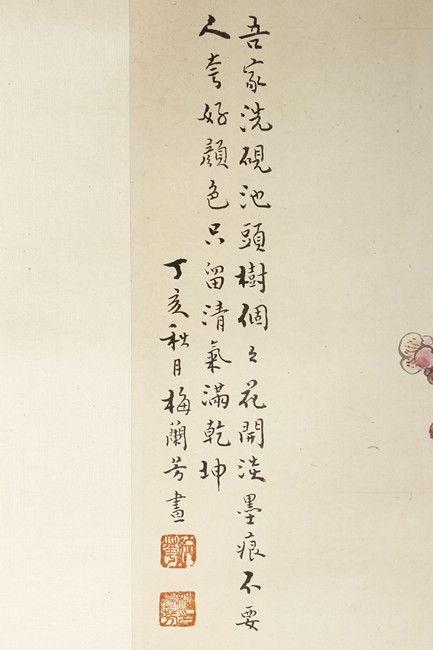 吾家洗硯池頭樹個々花開淡墨痕不要
人夸好顔色只留清氣滿乾坤
丁亥秋月梅蘭芳畫